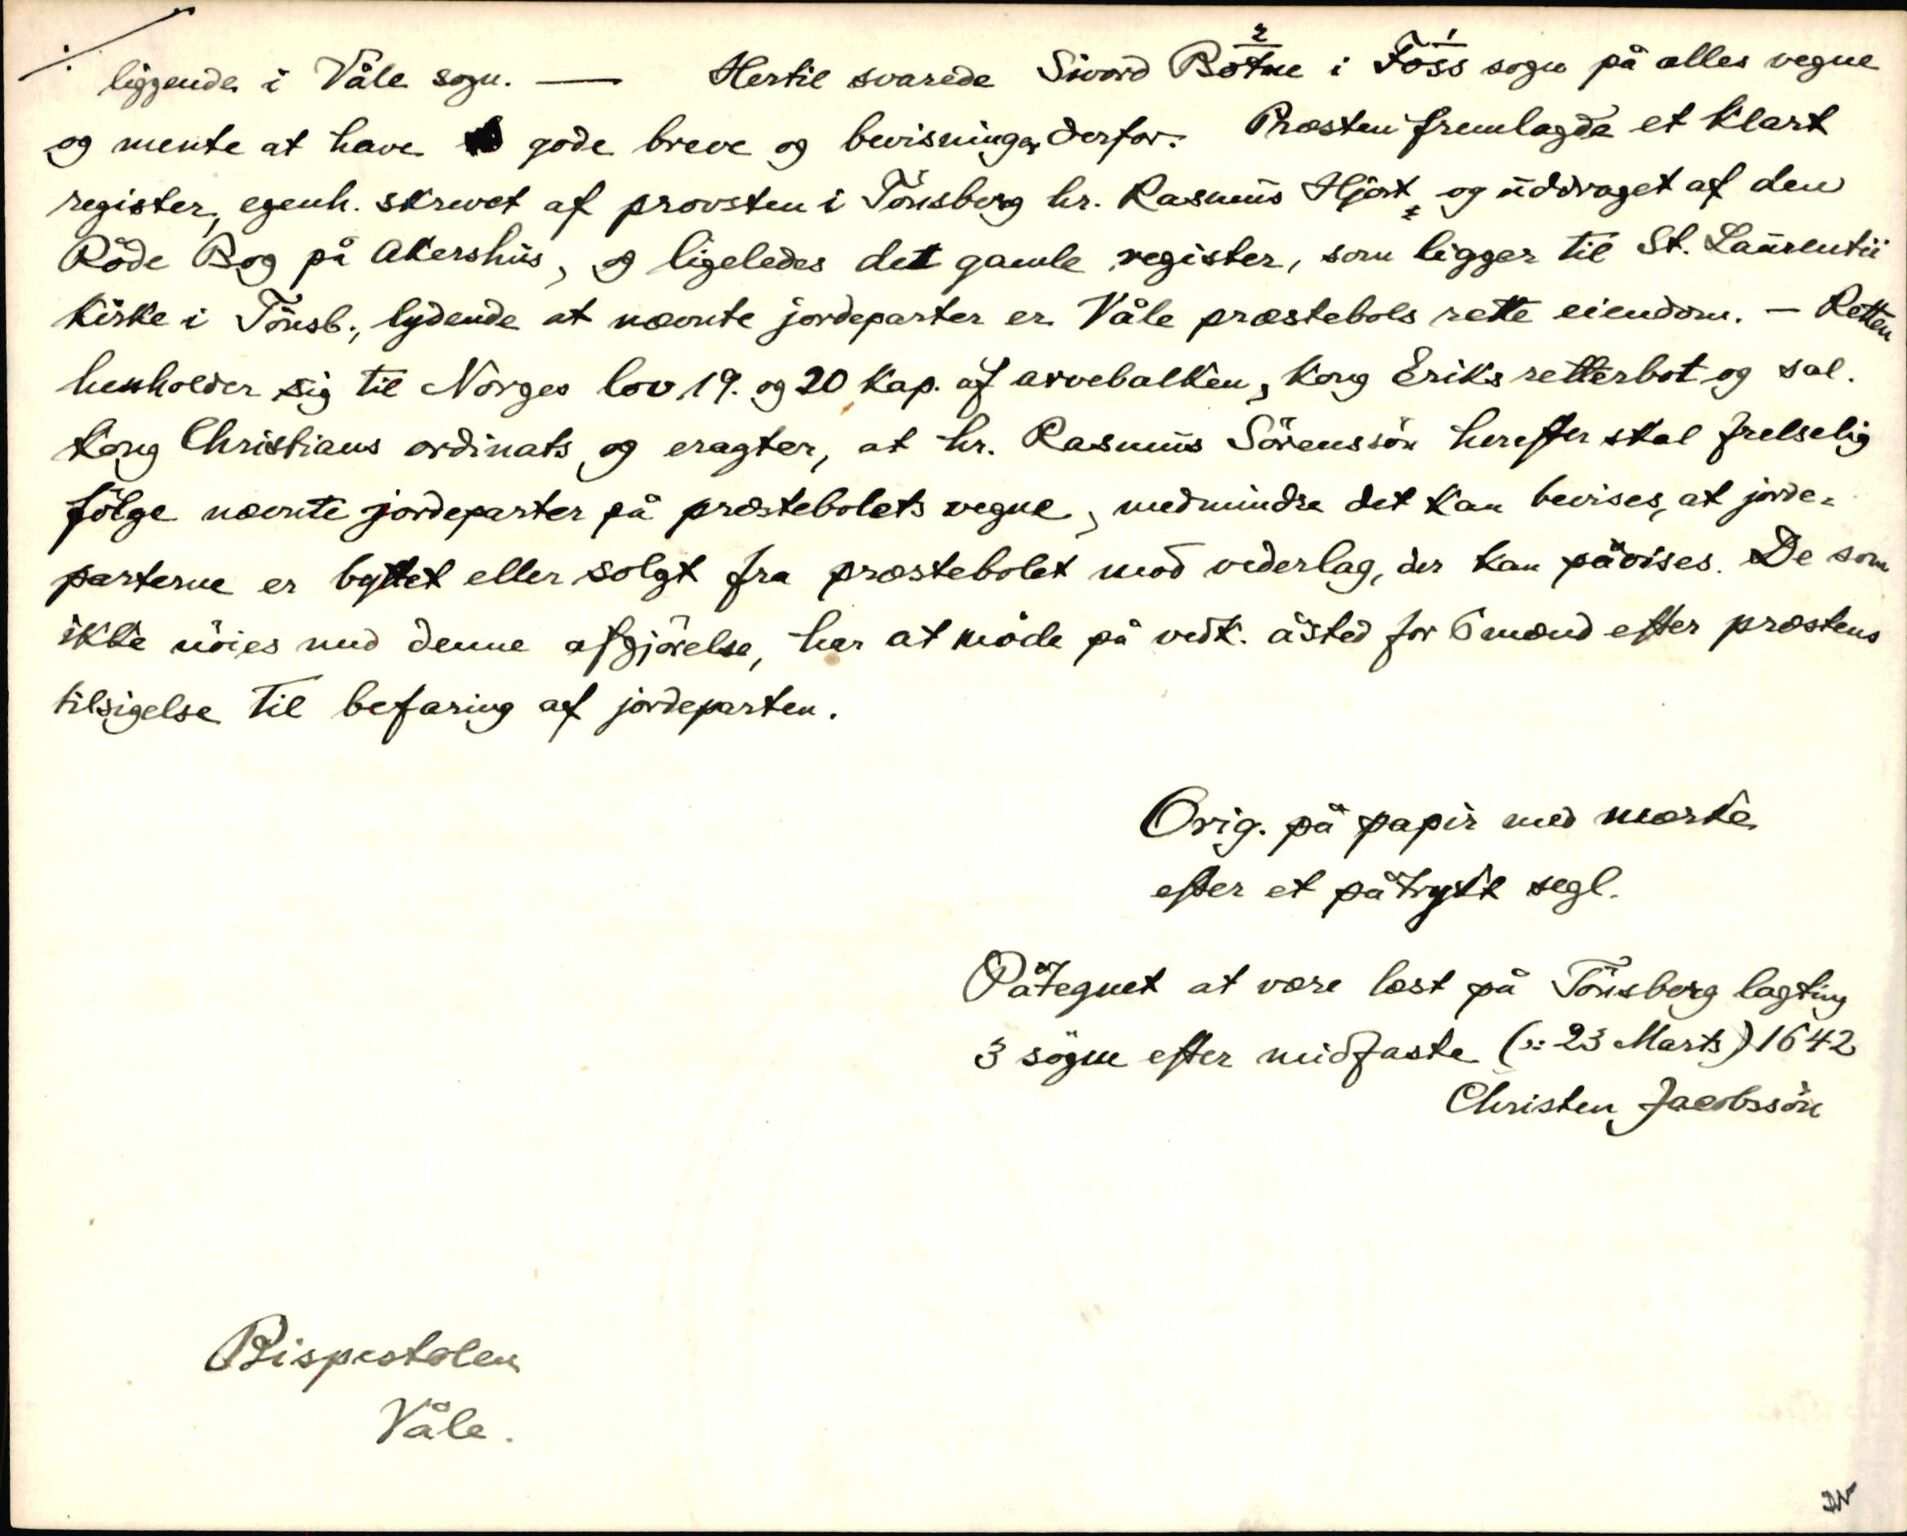 ./.
liggende i Våle sogn. — Hertil svarede Sivord Botne i Foss sogn på alles vegne
2 1
og mente at have gode breve og bevisninger derfor. Præsten fremlagde et klart
register, egenh. skrevet af provsten i Tönsberg hr. Rasmus Hjort, og uddraget af den
Röde Bog på Akershus, og ligeledes det gamle register, som ligger til St. Laurentii
kirke i Tönsb., lydende at nævnte jordeparter er Våle præstebols rette eiendom. — Retten
henholder sig til Norges lov 19. og 20 kap. af arvebalken, Kong Eriks retterbot og sal.
Kong Christians ordinats og eragter, at hr. Rasmus Sörenssön herefter skal frelselig
fölge nævnte jordeparter på præstebolets vegne, medmindre det kan bevises, at jorde-
parterne er byttet eller solgt fra præstebolet mod vederlag, der kan påvises. De som
ikke nöies med denne afgjörelse, har at möde på vedk. åsted for 6 mænd efter præstens
tilsigelse til befaring af jordeparten.
Orig. på papir med mærke
efter et påtrykt segl.
Påtegnet at være læst på Tönsberg lagting
3 sögne efter midfaste (ɔ: 23 Marts) 1642
Christen Jacobssön
Bispestolen
Våle.